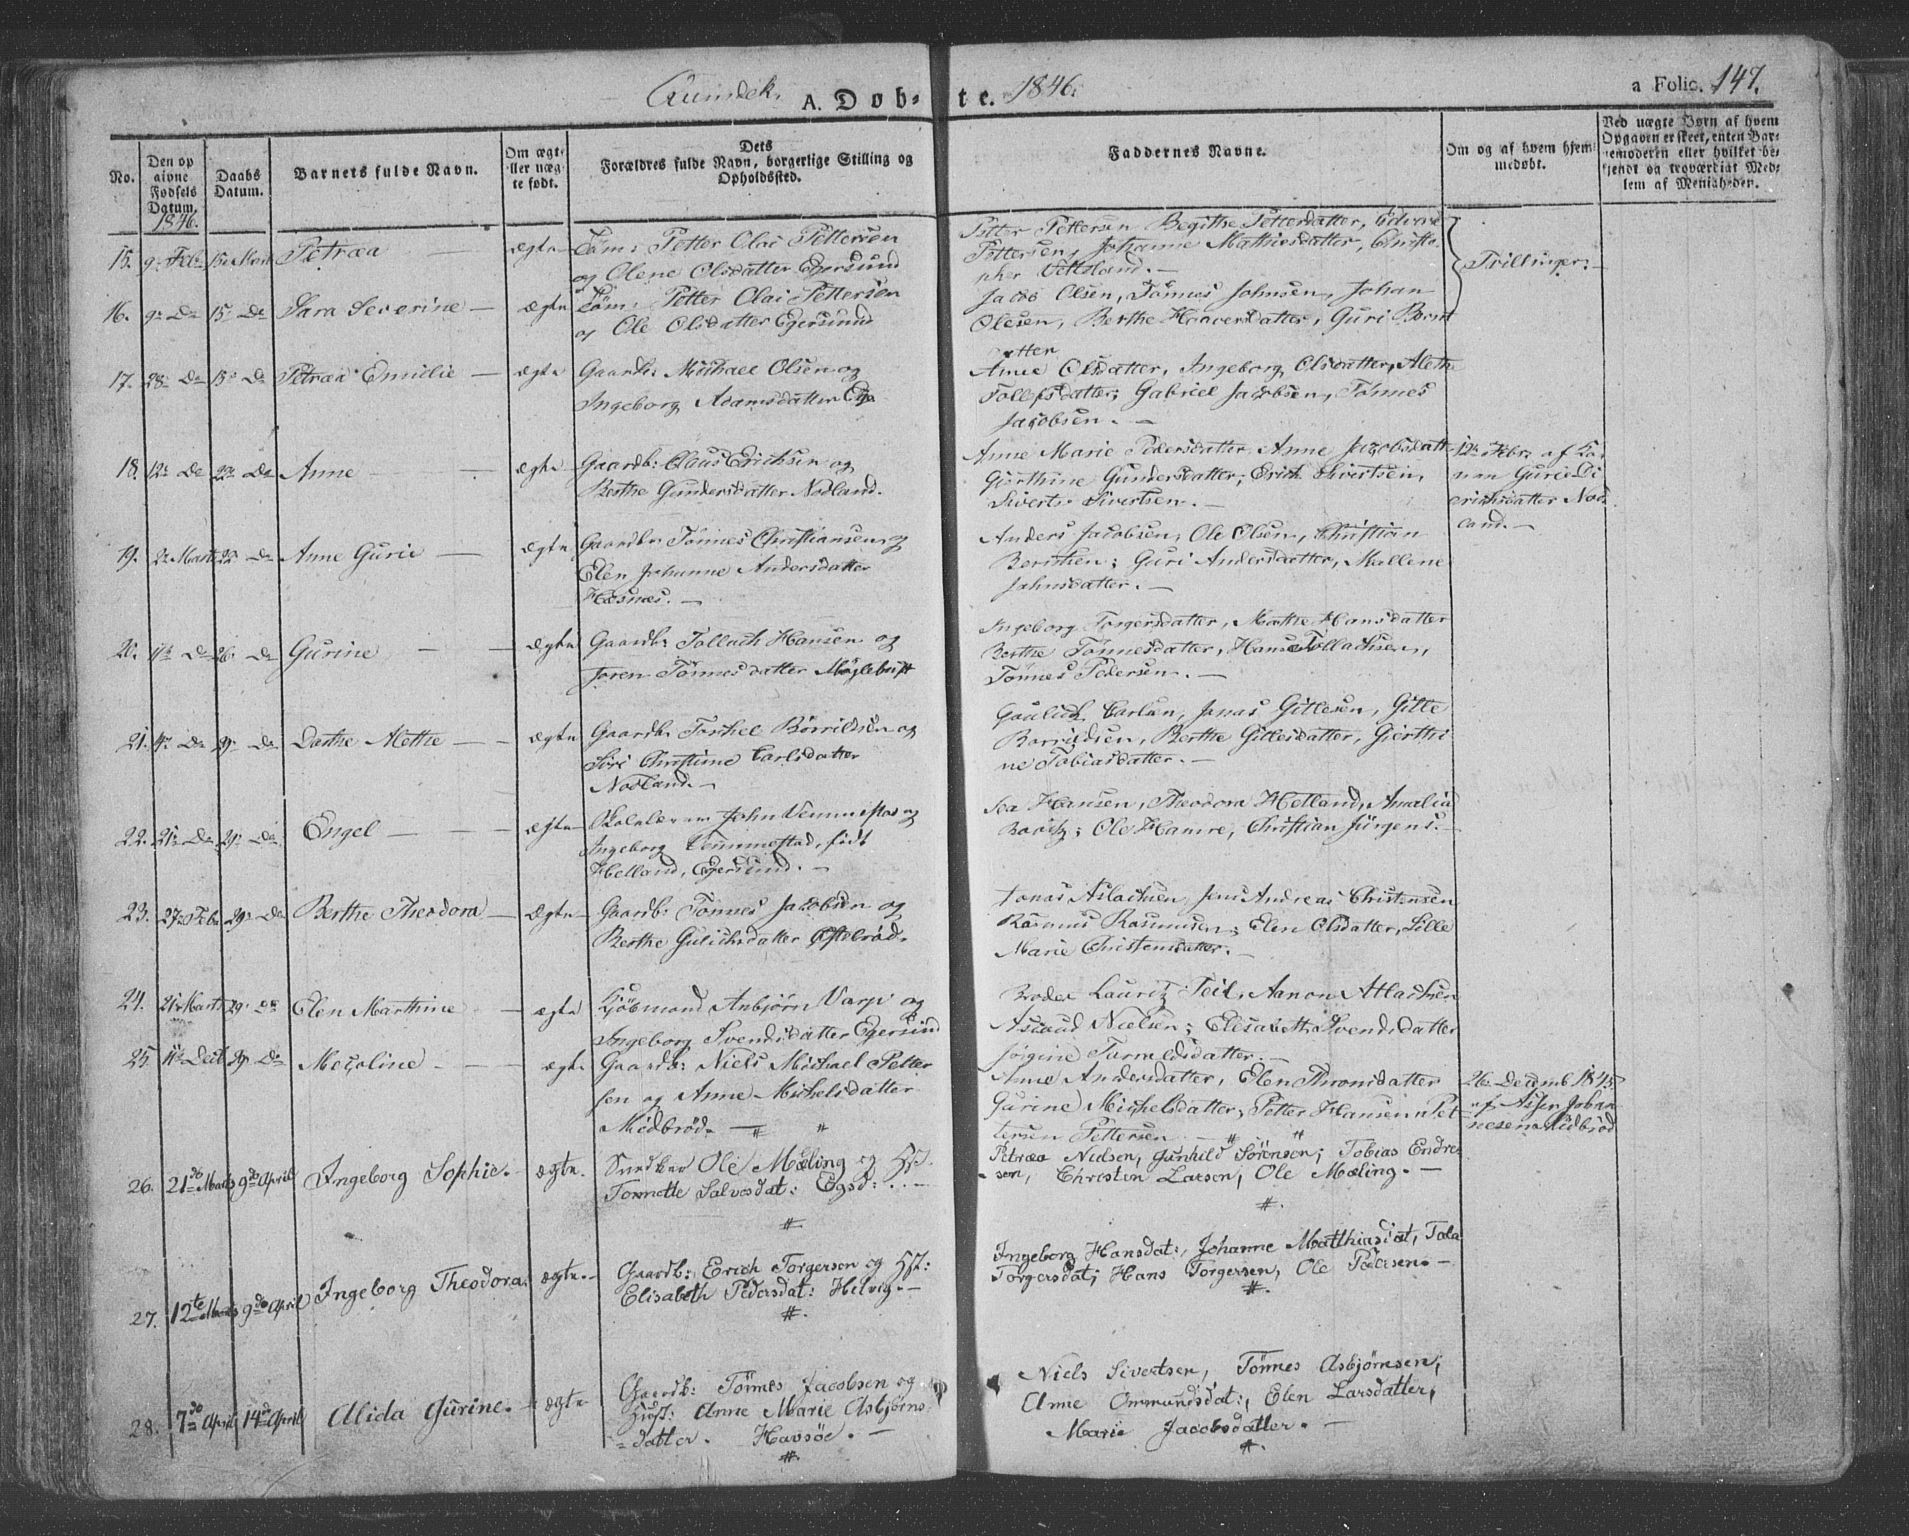 Qvindek. A. Døb-te. 1846. a Folio. 147.
No. | Den op aivne Fødsels Datum. | Daabs Datum. | Barnets fulde Navn. | Om ægt- ller uæg- te født. | Dets Forældres fulde Navn, borgerlige Stilling og Opholdssted. | Faddernes Navne. | Om og af hvem hjem- medøbt. | Ved uægte Børn af hvem Opgaven er skeet, enten Bar- nemoderen eller hvilket be- kjendt og troværdigt Med- lem af Menigheden.
1846.
15. 9. Feb. 15de Marts Petræa — ægte Tøm: Petter Olai Pettersen
og Olene Olsdatter Egersund
Petter Pettersen Begithe Pettersdatter, Edvard
Pettersen, Johanne Mathiasdatter, Christo-
pher Vetteland. —
Trillinger. —
16. 9de De 15de De Sara Severine — ægte Tøm: Petter Olai Pettersen
og Ole Olsdatter Egersund
Jacob Olsen, Tönnes Johnsen, Johan
Olesen, Berthe Haaversdatter, Guri Bernt
datter
17. 28de De 15de De Petræa Emilie — ægte Gaardb: Michael Olsen og
Ingeborg Adamsdatter Eg.
Anne Olsdatter, Ingeborg Olsdatter, Alethe
Tollefsdatter; Gabriel Jacobsen, Tönnes
Jacobsen. —
18. 12te De 22de De Anne — ægte Gaardb: Claus Erichsen og
Berthe Gundersdatter Nodland.
Anne Marie Pedersdatter, Anne Jacobsdatt
Gjerthine Gundersdatter; Erich Sivertsen,
Sivert Sivertsen. —
12te Febr. af Ko-
nen Gurie Di
erichsdatter Nod
land. —
19. 2de Marts 22de De Anne Gurie — ægte Gaardb: Tönnes Christiansen og
Elen Johanne Andersdatter
Hæsnæs. —
Anders Jacobsen, Ole Olsen, Christian
Berntsen; Guri Andersdatter, Mallene
Jahnsdatter. —
20. 11te De 26de De Gurine — ægte Gaardb: Tollach Hansen og
Joren Tönnesdatter Møglebust
Ingeborg Torgersdatter, Marthe Hansdatter
Berthe Tönnesdatter, Hans Tollachsen,
Tönnes Pedersen. —
21. 4de De 29de De Dorthe Alethe — ægte Gaardb: Torkel Börrildsen og
Siri Christine Carlsdatter
Nodland. —
Gaulich Carlsen, Jonas Gitlesen, Gitle
Borrildsen, Berthe Gitlesdatter, Gjerthi
ne Tobiasdatter. —
22. 21de De 29de De Engel — ægte Skolelærer John Vemmestad og
Ingeborg Vemmestad, født
Helland, Egersund. —
Hansen, Theodora Helland, Amalia
Ole Hamre, Christian Jürgens. —
23. 27de Feb. 29de De Berthe Theodora — ægte Gaardb: Tönnes Jacobsen og
Berthe Gulichsdatter Østebrød.
Jonas Aslachsen, Jens Andreas Christensen
Rasmus Rasmusen; Elen Olsdatter, Lille
Marie Christensdatter. —
24. 21de Marts 29de De Elen Marthine — ægte Kjöbmand Anbjörn Varp og
Ingeborg Svendsdatter Egersund
Broder Lauritz Feil, Aanon Atlachsen
Asbaud Nielsen; Elisabeth Svendsdatter
Jörgine Turmeldsdatter. —
25. 11te Decb 29de De Mecoline — ægte Gaardb: Niels Michael Petter
sen og Anne Michelsdatter
Midbrød. —
Anne Andersdatter, Elen Thronsdatter
Gurine Michelsdatter, Petter Hansen Pet
tersen Pettersen —
26. Decemb 1845
af Asser Johan-
nesen Midbrød
26. 21de Marts 9de April Ingeborg Sophie. — ægte. Snedker Ole Mæling og Hst.
Tonnette Salvesdat: Egsd: —
Petræa Nielsen, Gunhild Sörensen; Tobias Endre-
sen, Christen Larsen, Ole Mæling. —
27. 12te Marts 9de April Ingeborg Theodora. ægte. — Gaardb: Erich Torgersen og Hst:
Elisabeth Pedersdat: Helvig. —
Ingeborg Hansdat:, Johanne Matthiasdat, Tala
Torgersdat; Hans Torgersen, Ole Pedersen. —
28. 7de April 14de April Alida Gurine. — ægte Gaardb: Tönnes Jacobsen og
Hust: Anne Marie Asbjørns-
datter. Havsöe. —
Niels Sivertsen, Tönnes Asbjørnsen;
Anne Ommundsdat:, Elen Larsdatter,
Marie Jacobsdatter. —